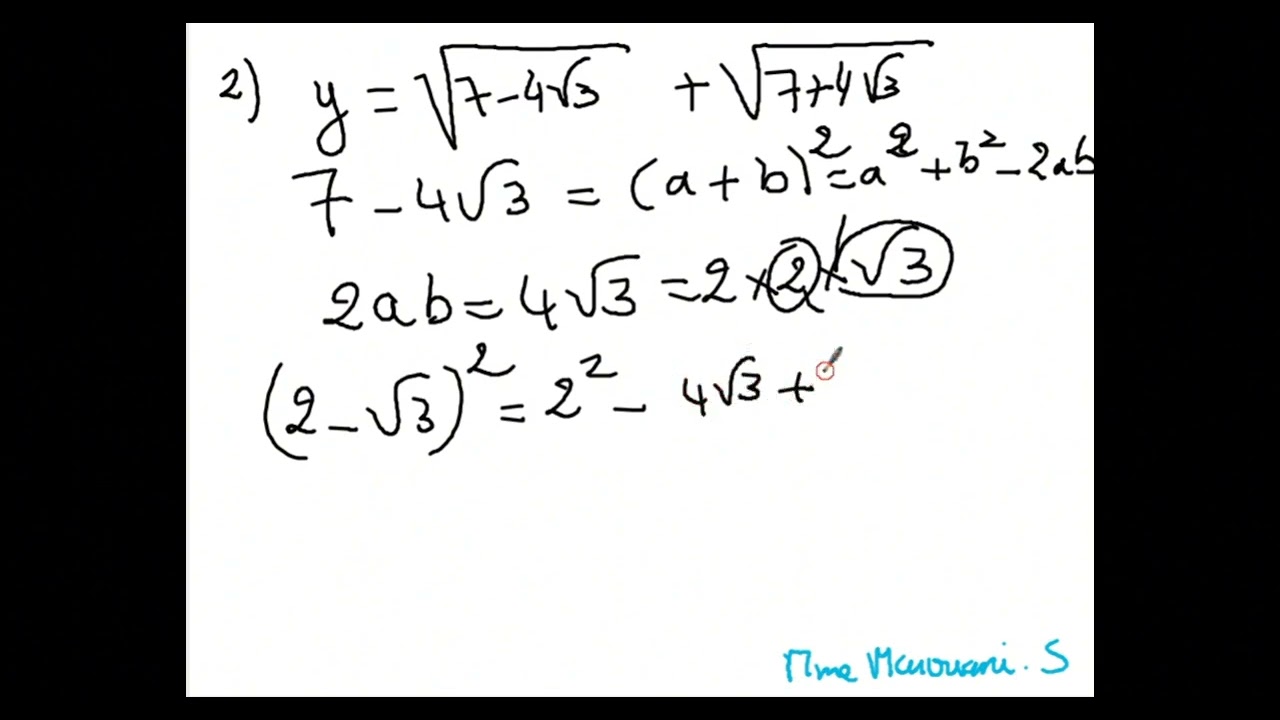 2) y = √(7-4√3) + √(7+4√3)
7 - 4√3 = (a + b)² = a² + b² - 2ab
2ab = 4√3 = 2 × 2 × √3
(2 - √3)² = 2² - 4√3 +
Mme Marouani. S